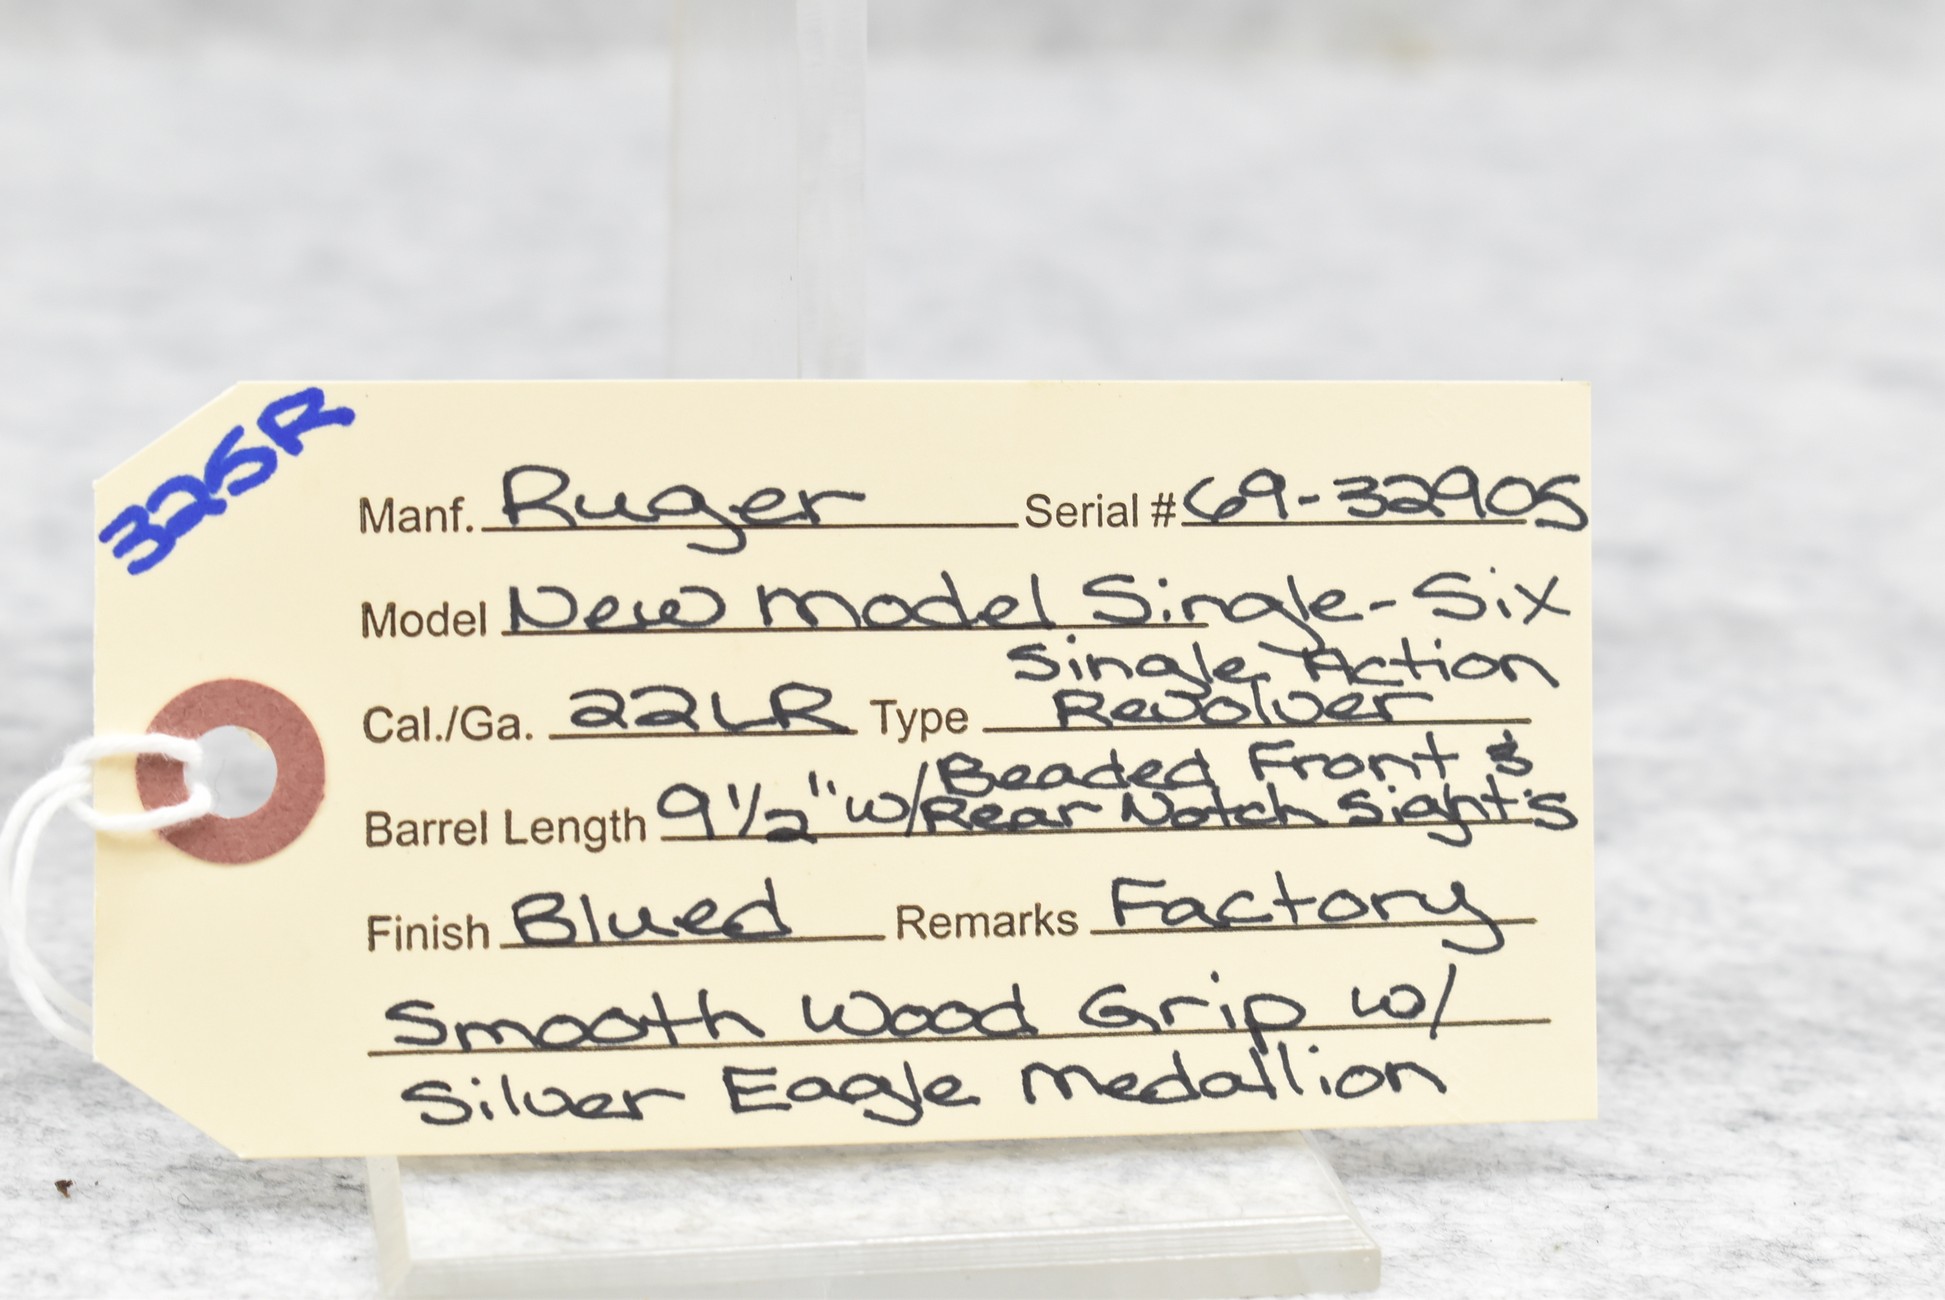 325R
Manf. Ruger Serial # 69-32905
Model New Model Single-Six
Single Action
Cal./Ga. 22LR Type Revolver
Beaded Front &
Barrel Length 9 1/2" w/ Rear Notch Sights
Finish Blued Remarks Factory
Smooth Wood Grip w/
Silver Eagle Medallion